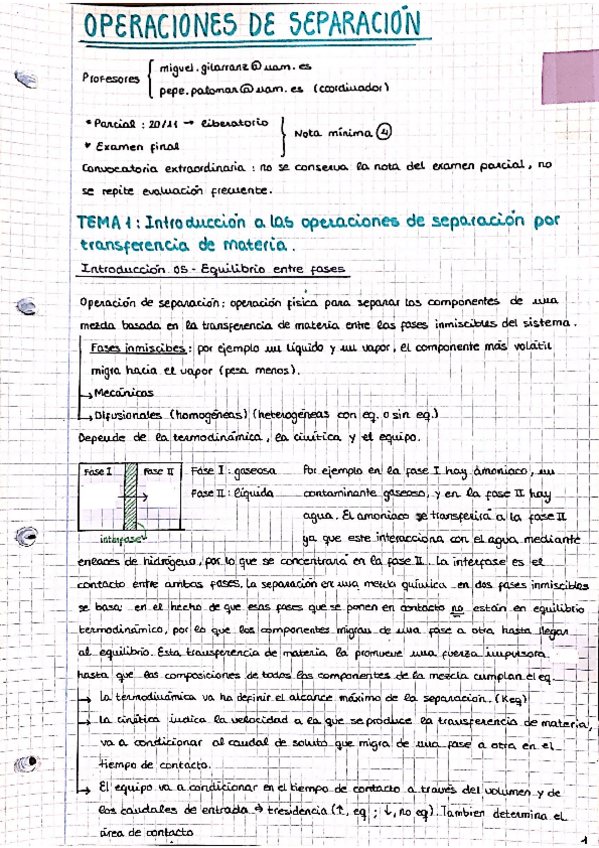 OPERACIONES DE SEPARACIÓN
Profesores
miguel.gilarranz@uam.es
pepe.palomar@uam.es (coordinador)
* Parcial : 20/11 → liberatorio
* Examen final
Nota mínima 4
Convocatoria extraordinaria : no se conserva la nota del examen parcial, no
se repite evaluación frecuente.
TEMA 1 : Introducción a las operaciones de separación por
transferencia de materia.
Introducción OS - Equilibrio entre fases
Operación de separación: operación física para separar los componentes de una
mezcla basada en la transferencia de materia entre las fases inmiscibles del sistema.
Fases inmiscibes : por ejemplo un líquido y un vapor, el componente más volátil
migra hacia el vapor (pesa menos).
→ Mecánicas
→ Difusionales (homogéneas) (heterogéneas con eq. o sin eq.)
Depende de la termodinámica, la cinítica y el equipo.
Fase I
Fase II
interfase
Fase I : gaseosa
Fase II : líquida
Por ejemplo en la fase I hay amoniaco, un
contaminante gaseoso, y en la fase II hay
agua. El amoniaco se transferirá a la fase II
ya que este interacciona con el agua mediante
enlaces de hidrógeno, por lo que se concentrará en la fase II. La interfase es el
contacto entre ambas fases. La separación en una mezcla química en dos fases inmiscibles
se basa en el hecho de que esas fases que se ponen en contacto no están en equilibrio
termodinámico, por lo que los componentes migran de una fase a otra hasta llegar
al equilibrio. Esta transferencia de materia la promueve una fuerza impulsora
hasta que las composiciones de todos los componentes de la mezcla cumplan el eq.
→ La termodinámica va ha definir el alcance máximo de la separación. (Keq)
→ La cinítica indica la velocidad a la que se produce la transferencia de materia,
va a condicionar al caudal de soluto que migra de una fase a otra en el
tiempo de contacto.
→ El equipo va a condicionar en el tiempo de contacto a través del volumen y de
los caudales de entrada → tresidencia (↑, eq ; ↓, no eq). Tambien determina el
área de contacto
1